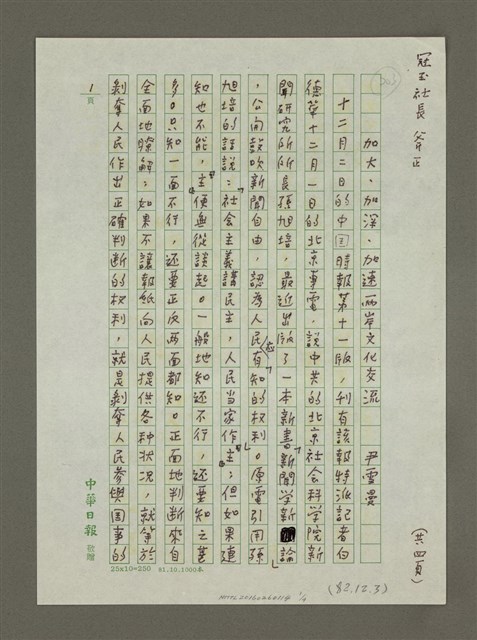 冠玉社長 斧正
503
加大、加深、加速兩岸文化交流　　尹雪曼
十二月二日的中国時報第十一版，刊有該報特派記者白
德華十二月一日的北京專電，說中共的北京社會科學院新
聞研究所所長孫旭培，最近出版了一本新書「新聞學新論」
，公開鼓吹新聞自由，認為人民有「知的权利」。原電引用孫
旭培的話說：「社会主義講民主，人民當家作『主』；但如果連
知也不能，『主』便無從談起。一般地知还不行，还要知之甚
多。只知一面不行，还要正反兩面都知。正面地判斷來自
全面地瞭解；如果不讓報紙向人民提供各种狀况，就等於
剝奪人民作出正確判斷的权利，就是剝奪人民參與国事的
1頁
中華日報 敬贈
25x10=250 81.10.1000本
（共四頁）
(82.12.3)
1/4